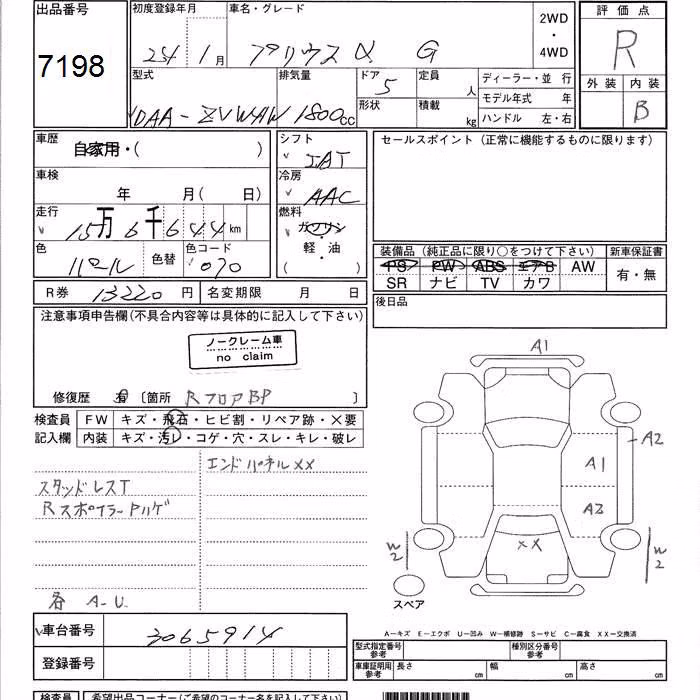 出品番号 初度登録年月 車名・グレード 2WD ・ 4WD 評価点
7198 25年 1月 プリウスα G R
型式 排気量 ドア 5 定員 人 ディーラー・並行 外装 内装
DAA-ZVW41W 1800cc 形状 積載 kg モデル年式 年 B
ハンドル 左・右
車歴 自家用・( ) シフト IAT セールスポイント(正常に機能するものに限ります)
車検 年 月(日) 冷房 AAC
走行 15万6千644km 燃料 ガソリン
軽・油
( )
色 パール 色替 色コード 070
装備品(純正品に限り○をつけて下さい) 新車保証書
PS PW ABS エアB AW 有・無
SR ナビ TV カワ
R券 13220円 名変期限 月 日 後日品
注意事項申告欄(不具合内容等は具体的に記入して下さい)
ノークレーム車
no claim
修復歴 有 〔箇所 RフロアBP 〕
検査員 FW キズ・飛石・ヒビ割・リペア跡・×要
記入欄 内装 キズ・汚レ・コゲ・穴・スレ・キレ・破レ
エンドパネルXX
スタッドレスT
Rスポイラー
各 A-U
A1
A2
A1
A2
W2
XX
W2
スペア
A−キズ E−エクボ U−凹み W−補修跡 S−サビ C−腐食 XX−交換済
車台番号 3065914
登録番号
型式指定番号 参考 種別区分番号 参考
車庫証明用 参考 長さ cm 幅 cm 高さ cm
検査員 希望出品コーナー(ご希望のコーナー名を記入して下さい)